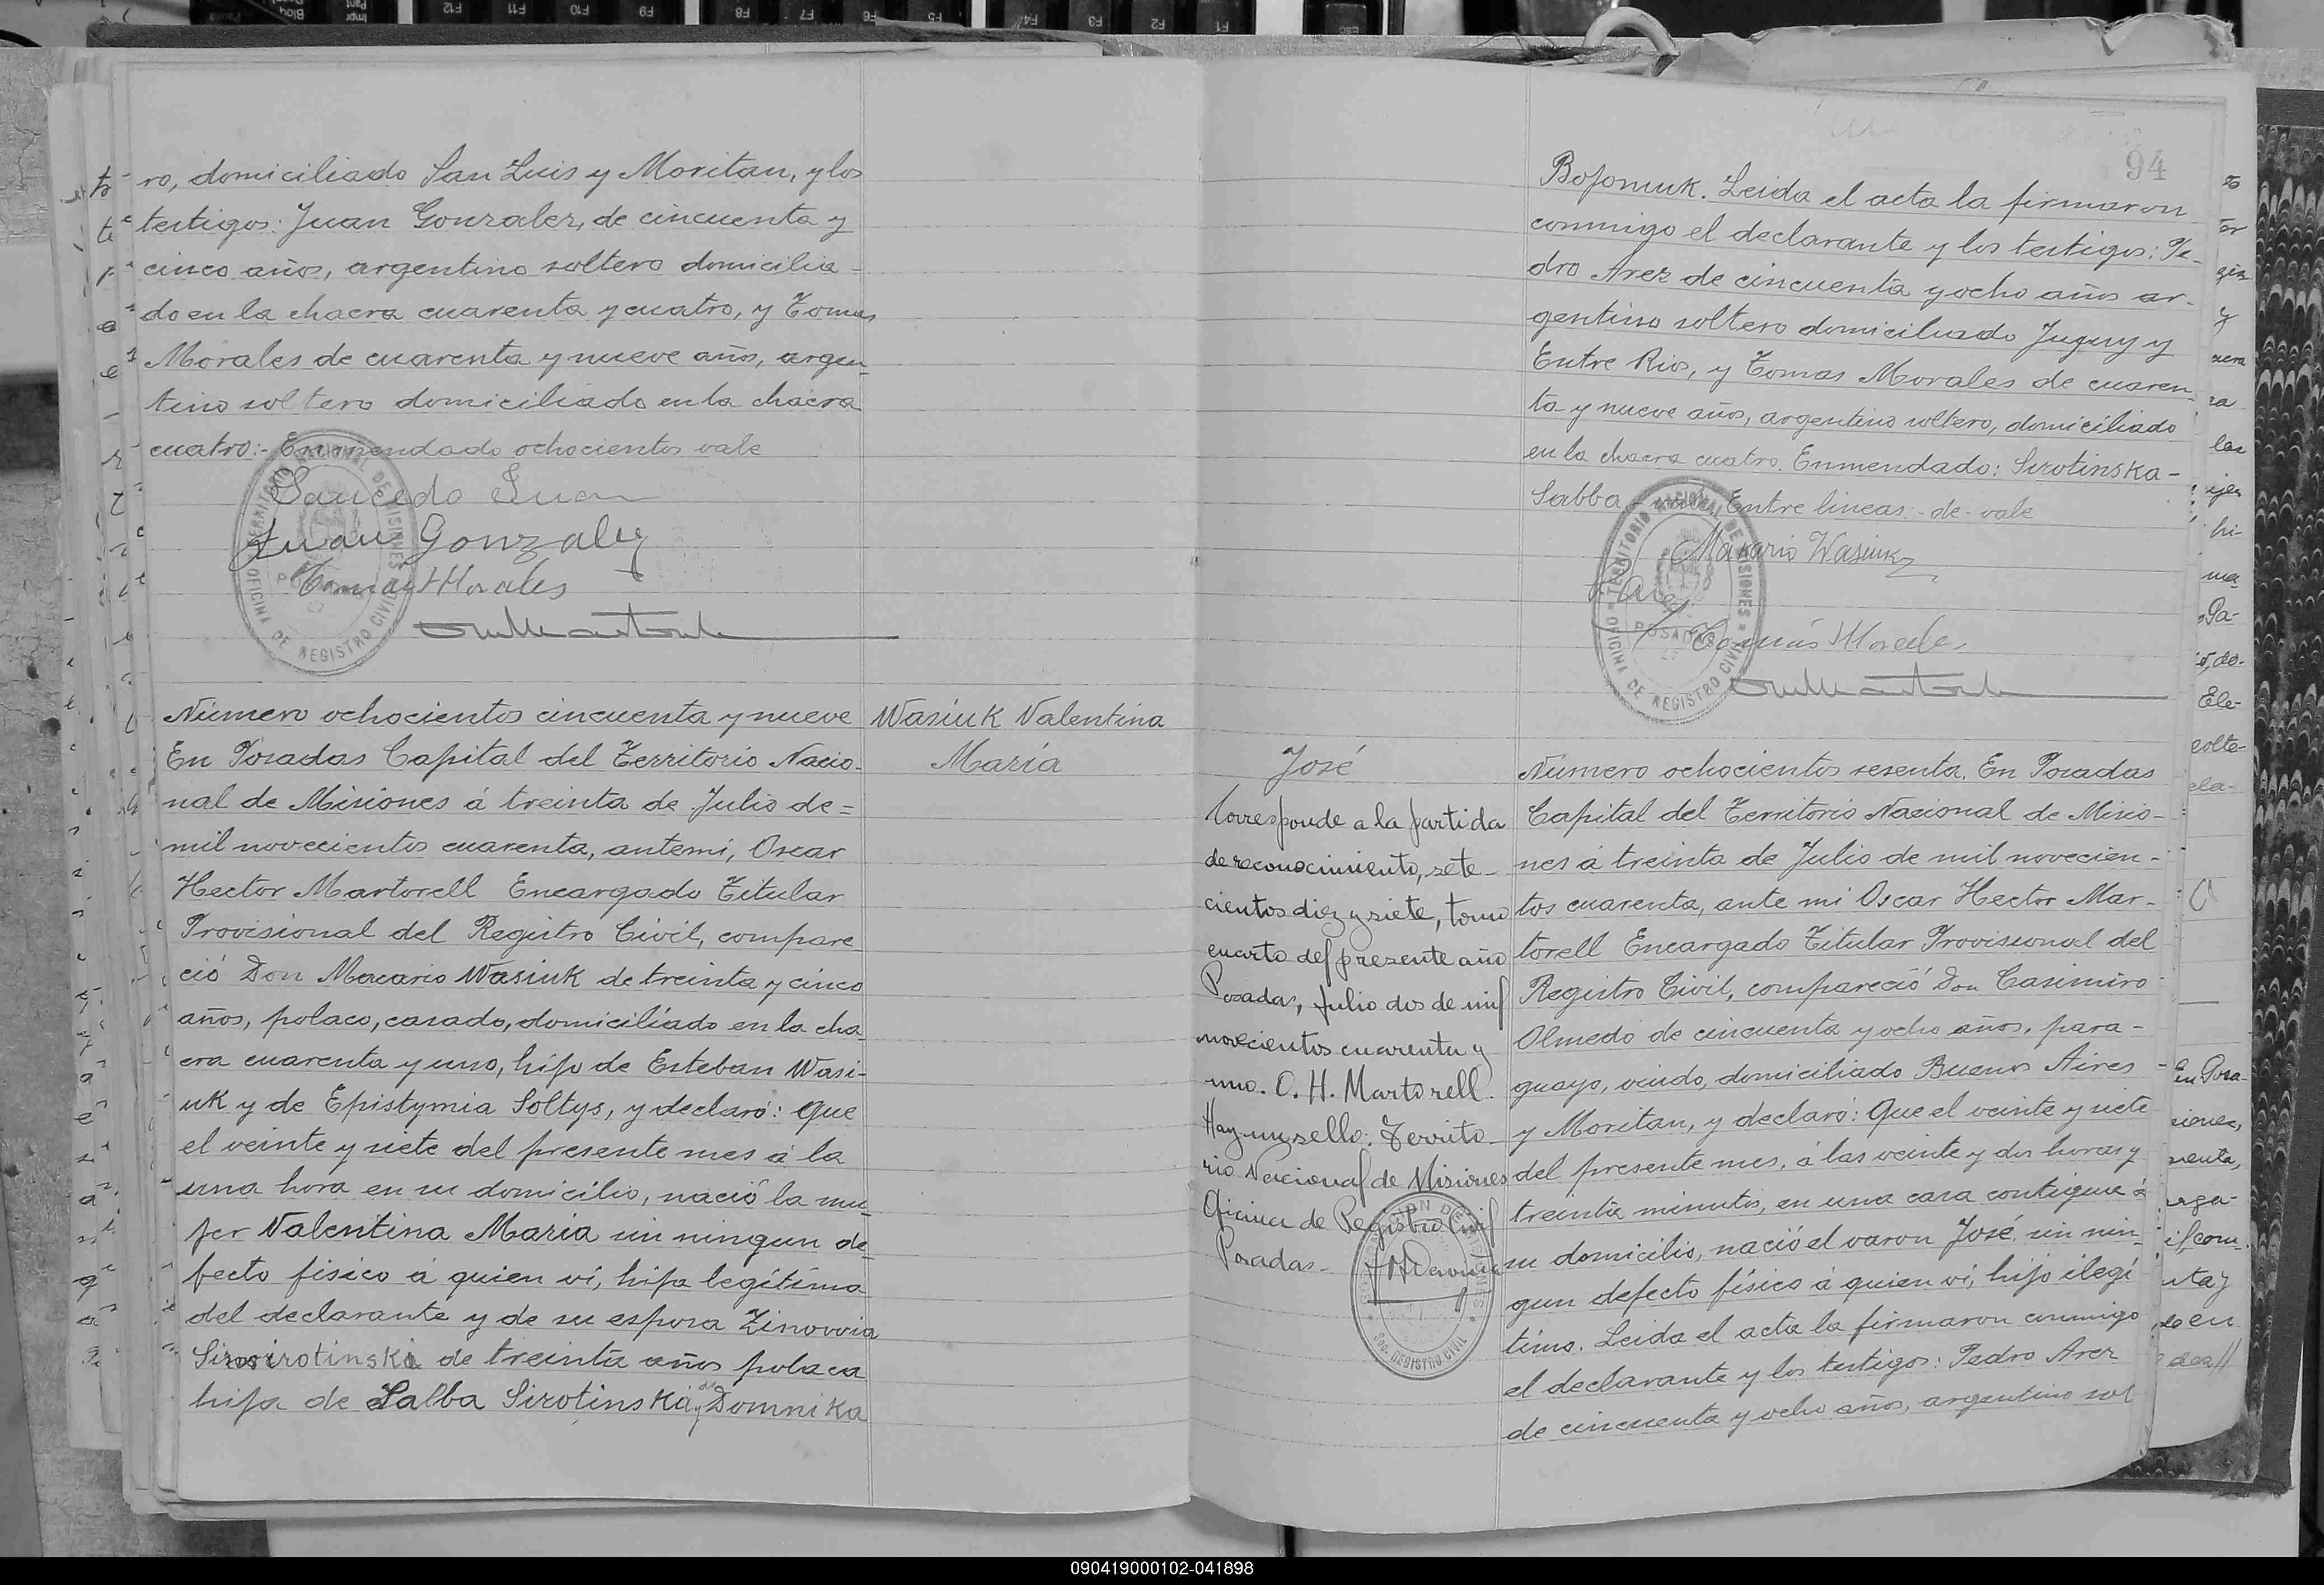 ro, domiciliado San Luis y Moritan, y los
testigos: Juan Gonzalez, de cincuenta y
cinco años, argentino soltero domicilia-
do en la chacra cuarenta y cuatro, y Tomas
Morales de cuarenta y nueve años, argen-
tino soltero domiciliado en la chacra
cuatro:- Enmendado ochocientos vale
Saucedo Juan
Juan Gonzalez
Tomas Morales
TERRITORIO NACIONAL DE MISIONES
POSADAS
OFICINA DE REGISTRO CIVIL
Número ochocientos cincuenta y nueve
En Posadas Capital del Territorio Nacio-
nal de Misiones á treinta de Julio de=
mil novecientos cuarenta, antemi, Oscar
Hector Martorell Encargado Titular
Provisional del Registro Civil, compare
ció Don Macario Wasiuk de treinta y cinco
años, polaco, casado, domiciliado en la cha-
cra cuarenta y uno, hijo de Esteban Wasi-
uk y de Epistymia Soltys, y declaró: Que
el veinte y siete del presente mes á la
una hora en su domicilio, nació la mu-
jer Valentina Maria sin ningun de-
fecto físico á quien ví, hija legítima
del declarante y de su esposa Zinovvia
Sirotinska de treinta años polaca
hija de Salba Sirotinska y de Domnika
Wasiuk Valentina
María
94
Bojomuk. Leida el acta la firmaron
conmigo el declarante y los testigos: Pe-
dro Arez de cincuenta y ocho años ar-
gentino soltero domiciliado Jujuy y
Entre Rios, y Tomas Morales de cuaren-
ta y nueve años, argentino soltero, domiciliado
en la chacra cuatro. Enmendado: Sirotinska-
Sabba - vale. Entre lineas - de - vale
Makario Wasiuk
Tomás Morales
TERRITORIO NACIONAL DE MISIONES
POSADAS
OFICINA DE REGISTRO CIVIL
José
Corresponde a la partida
de reconocimiento, sete-
cientos diez y siete, tomo
cuarto del presente año
Posadas, Julio dos de mil
novecientos cuarenta y
uno. O. H. Martorell.
Hay un sello: Territo-
rio Nacional de Misiones
Oficina de Registro Civil
Posadas-
REGISTRO CIVIL
Número ochocientos sesenta. En Posadas
Capital del Territorio Nacional de Misio-
nes á treinta de Julio de mil novecien-
tos cuarenta, ante mi Oscar Hector Mar-
torell Encargado Titular Provisional del
Registro Civil, compareció Don Casimiro
Olmedo de cincuenta y ocho años, para-
guayo, viudo, domiciliado Buenos Aires
y Moritan, y declaró: Que el veinte y siete
del presente mes, á las veinte y dos horas y
treinta minutos, en una casa contigua á
su domicilio, nació el varon José, sin nin-
gun defecto físico á quien ví, hijo ilegí
timo. Leida el acta la firmaron conmigo
el declarante y los testigos: Pedro Arez
de cincuenta y ocho años, argentino sol
090419000102-041898